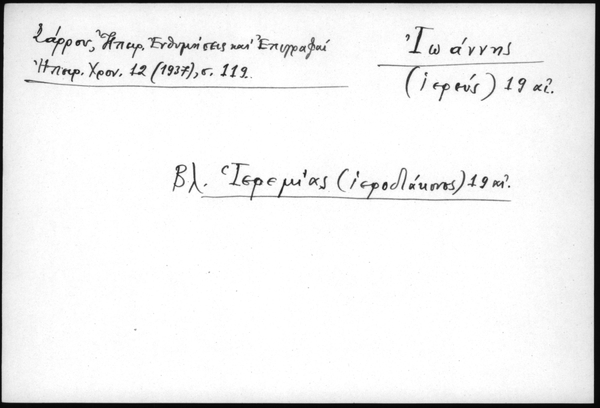 Σάρρου, Ἠπειρ. Ἐνθυμήσεις καὶ Ἐπιγραφαί
Ἠπειρ. Χρον. 12 (1937), σ. 119.
Ἰωάννης
(ἱερεύς) 19 αἰ.
Βλ. Ἱερεμίας (ἱεροδιάκονος) 19 αἰ.